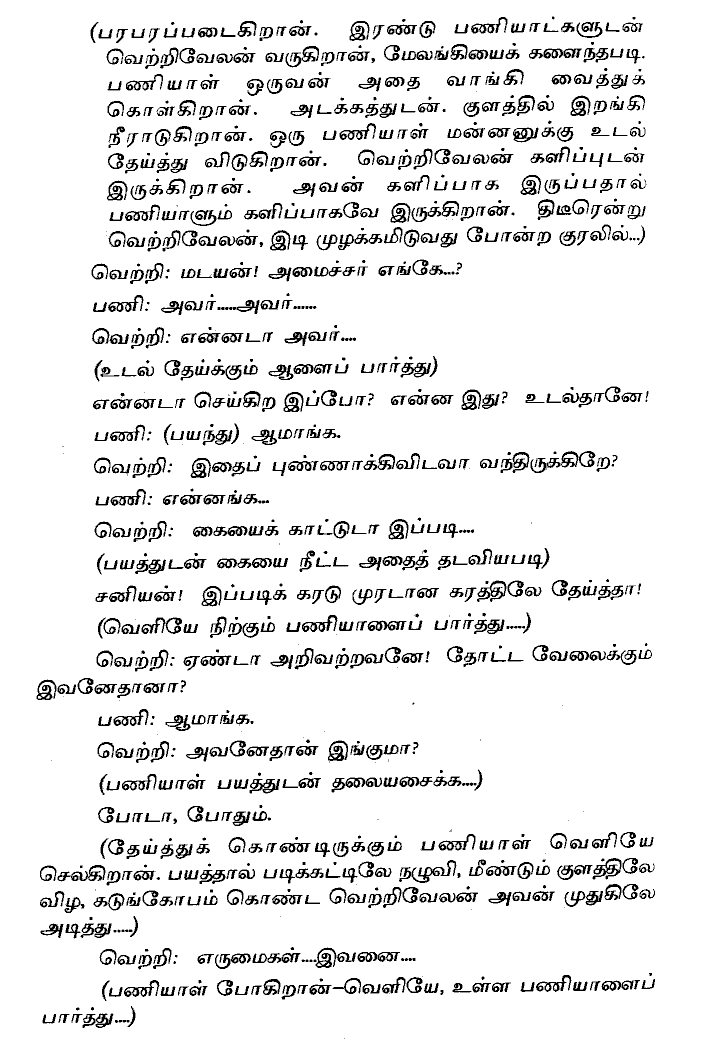 (பரபரப்படைகிறான். இரண்டு பணியாட்களுடன்
வெற்றிவேலன் வருகிறான், மேலங்கியைக் களைந்தபடி.
பணியாள் ஒருவன் அதை வாங்கி வைத்துக்
கொள்கிறான். அடக்கத்துடன். குளத்தில் இறங்கி
நீராடுகிறான். ஒரு பணியாள் மன்னனுக்கு உடல்
தேய்த்து விடுகிறான். வெற்றிவேலன் களிப்புடன்
இருக்கிறான். அவன் களிப்பாக இருப்பதால்
பணியாளும் களிப்பாகவே இருக்கிறான். திடீரென்று
வெற்றிவேலன், இடி முழக்கமிடுவது போன்ற குரலில்...)
வெற்றி: மடயன்! அமைச்சர் எங்கே...?
பணி: அவர்.....அவர்......
வெற்றி: என்னடா அவர்....
(உடல் தேய்க்கும் ஆளைப் பார்த்து)
என்னடா செய்கிற இப்போ? என்ன இது? உடல்தானே!
பணி: (பயந்து) ஆமாங்க.
வெற்றி: இதைப் புண்ணாக்கிவிடவா வந்திருக்கிறே?
பணி: என்னங்க...
வெற்றி: கையைக் காட்டுடா இப்படி....
(பயத்துடன் கையை நீட்ட அதைத் தடவியபடி)
சனியன்! இப்படிக் கரடு முரடான கரத்திலே தேய்த்தா!
(வெளியே நிற்கும் பணியாளைப் பார்த்து.....)
வெற்றி: ஏண்டா அறிவற்றவனே! தோட்ட வேலைக்கும்
இவனேதானா?
பணி: ஆமாங்க.
வெற்றி: அவனேதான் இங்குமா?
(பணியாள் பயத்துடன் தலையசைக்க....)
போடா, போதும்.
(தேய்த்துக் கொண்டிருக்கும் பணியாள் வெளியே
செல்கிறான். பயத்தால் படிக்கட்டிலே நழுவி, மீண்டும் குளத்திலே
விழ, கடுங்கோபம் கொண்ட வெற்றிவேலன் அவன் முதுகிலே
அடித்து.....)
வெற்றி: எருமைகள்....இவனை....
(பணியாள் போகிறான்–வெளியே, உள்ள பணியாளைப்
பார்த்து....)